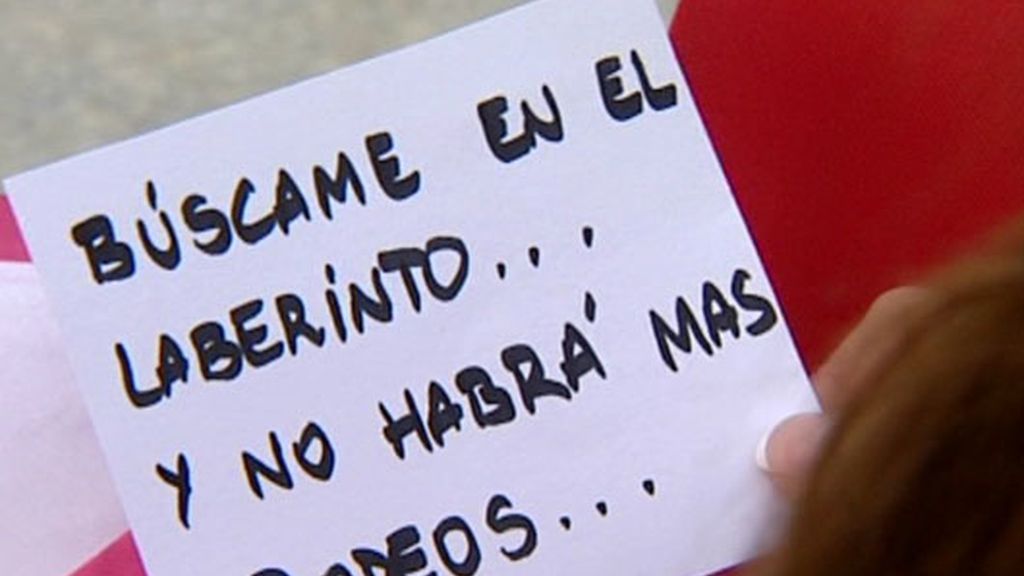 BÚSCAME EN EL
LABERINTO...
Y NO HABRÁ MAS
RODEOS...